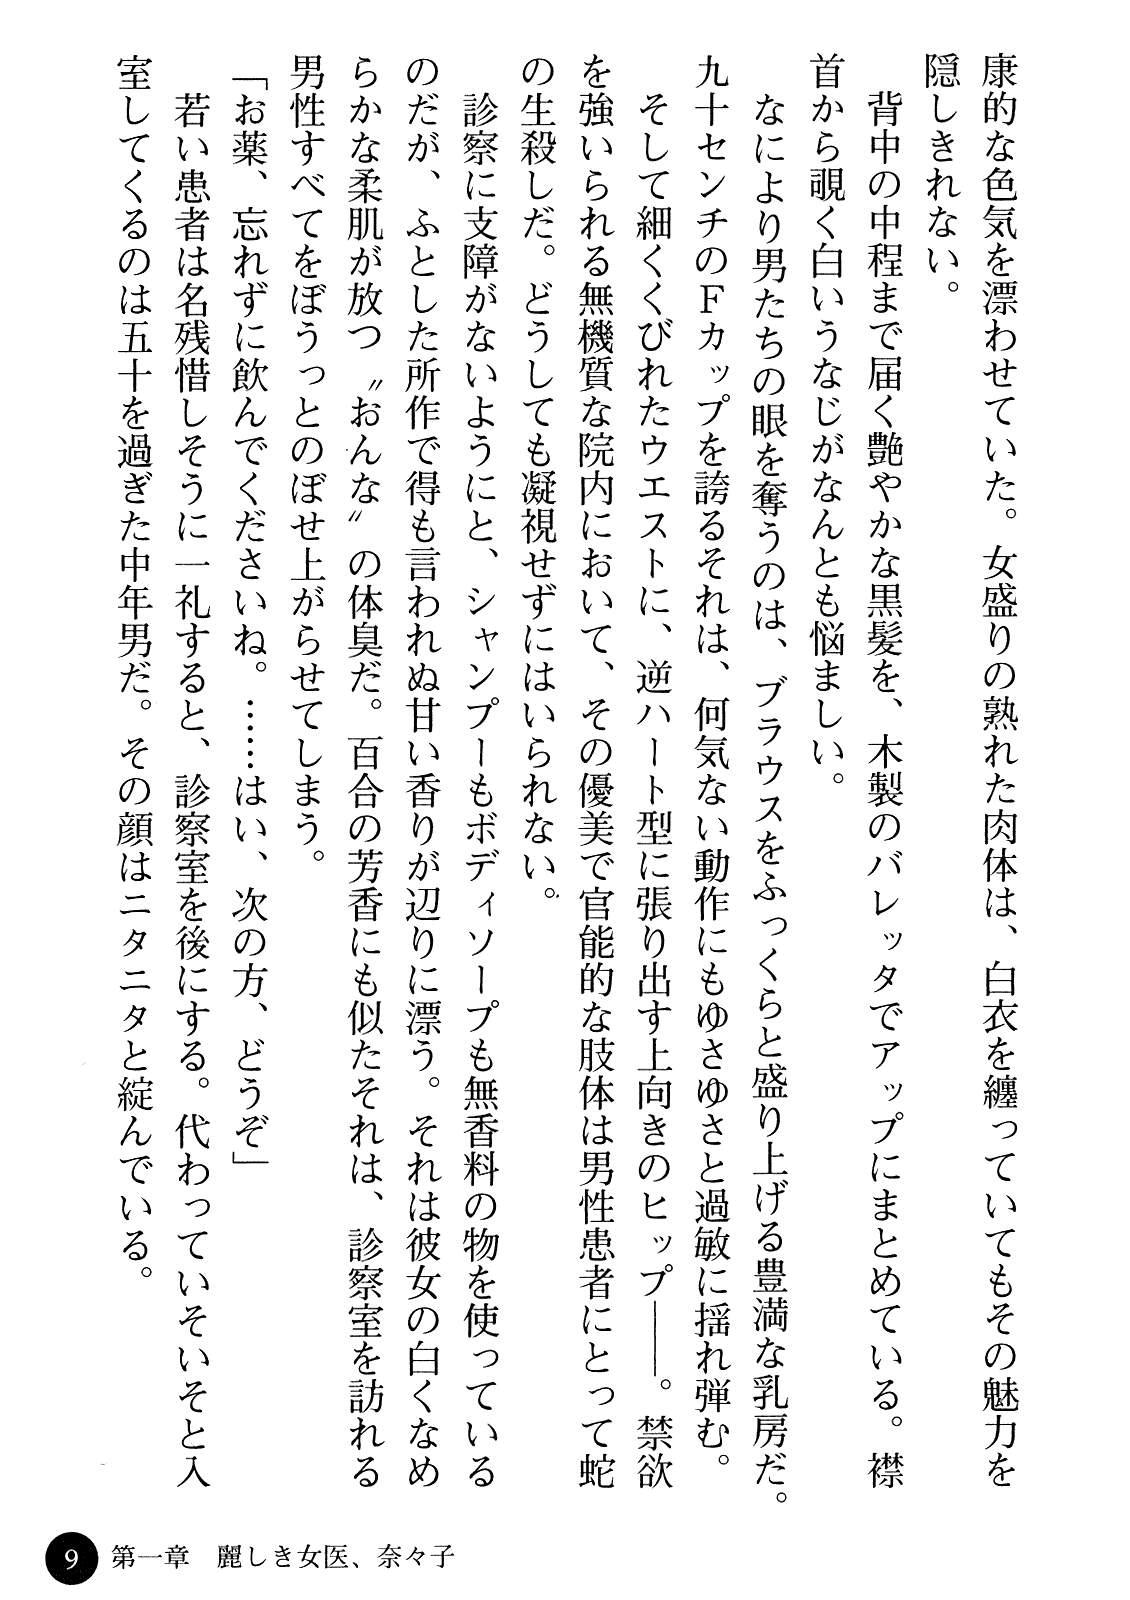 康的な色気を漂わせていた。女盛りの熟れた肉体は、白衣を纏っていてもその魅力を
隠しきれない。
背中の中程まで届く艶やかな黒髪を、木製のバレッタでアップにまとめている。襟
首から覗く白いうなじがなんとも悩ましい。
なにより男たちの眼を奪うのは、ブラウスをふっくらと盛り上げる豊満な乳房だ。
九十センチのＦカップを誇るそれは、何気ない動作にもゆさゆさと過敏に揺れ弾む。
そして細くくびれたウエストに、逆ハート型に張り出す上向きのヒップ――。禁欲
を強いられる無機質な院内において、その優美で官能的な肢体は男性患者にとって蛇
の生殺しだ。どうしても凝視せずにはいられない。
診察に支障がないようにと、シャンプーもボディソープも無香料の物を使っている
のだが、ふとした所作で得も言われぬ甘い香りが辺りに漂う。それは彼女の白くなめ
らかな柔肌が放つ〝おんな〟の体臭だ。百合の芳香にも似たそれは、診察室を訪れる
男性すべてをぼうっとのぼせ上がらせてしまう。
「お薬、忘れずに飲んでくださいね。……はい、次の方、どうぞ」
若い患者は名残惜しそうに一礼すると、診察室を後にする。代わっていそいそと入
室してくるのは五十を過ぎた中年男だ。その顔はニタニタと綻んでいる。
9 第一章　麗しき女医、奈々子